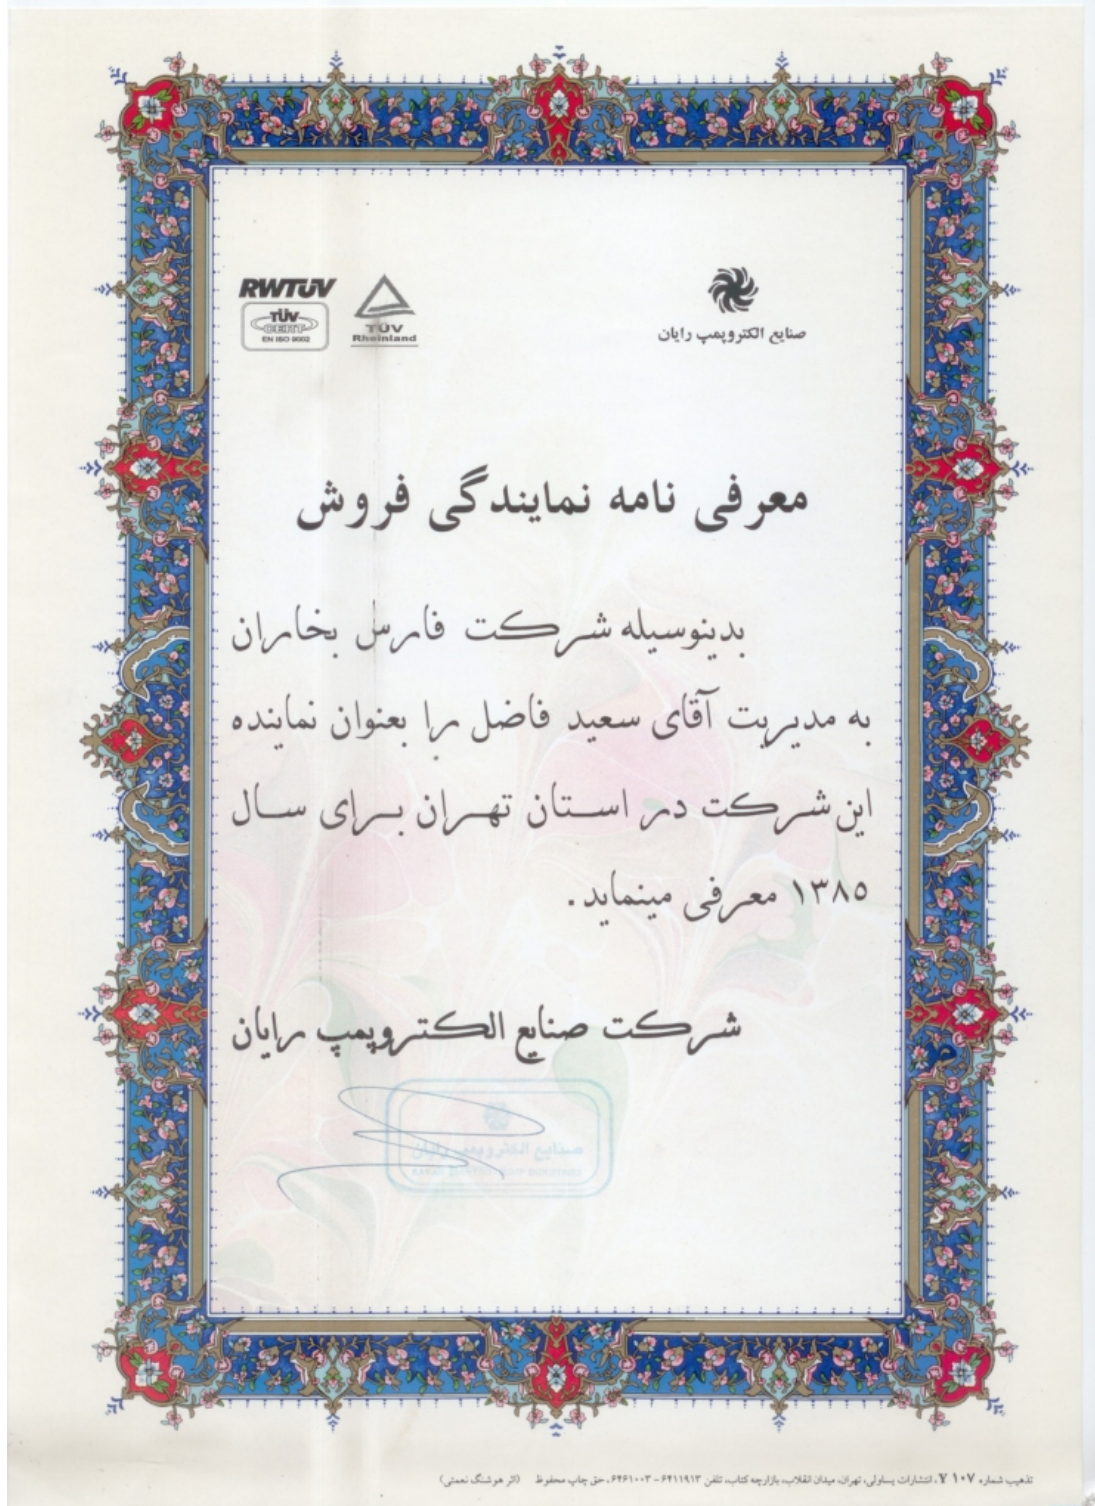 RWTÜV
TÜV
CERT
EN ISO 9002
TÜV
Rheinland
صنایع الکتروپمپ رایان
معرفی نامه نمایندگی فروش
بدینوسیله شرکت فارس بخاران
به مدیریت آقای سعید فاضل را بعنوان نماینده
این شرکت در استان تهران برای سال
۱۳۸۵ معرفی مینماید.
شرکت صنایع الکتروپمپ رایان
صنایع الکتروپمپ رایان
تذهیب شماره ۱۰۷ Y، انتشارات یساولی، تهران، میدان انقلاب، بازارچه کتاب، تلفن ۶۴۱۱۹۱۳ - ۶۴۶۱۰۰۳، حق چاپ محفوظ (اثر هوشنگ نعمتی)